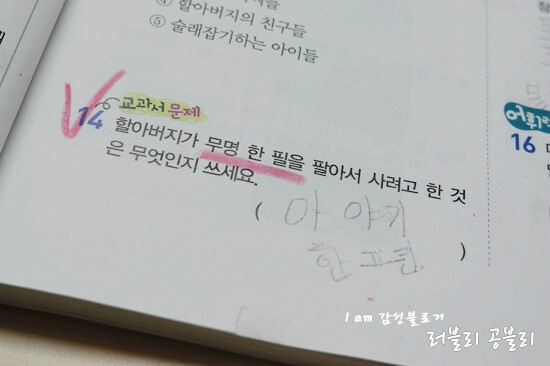 ④ 할아버지의 친구들
⑤ 술래잡기하는 아이들
교과서 문제
14 할아버지가 무명 한 필을 팔아서 사려고 한 것
은 무엇인지 쓰세요.
( 이야기
한 )
어휘
16
I am 감성블로거
러블리 공블리